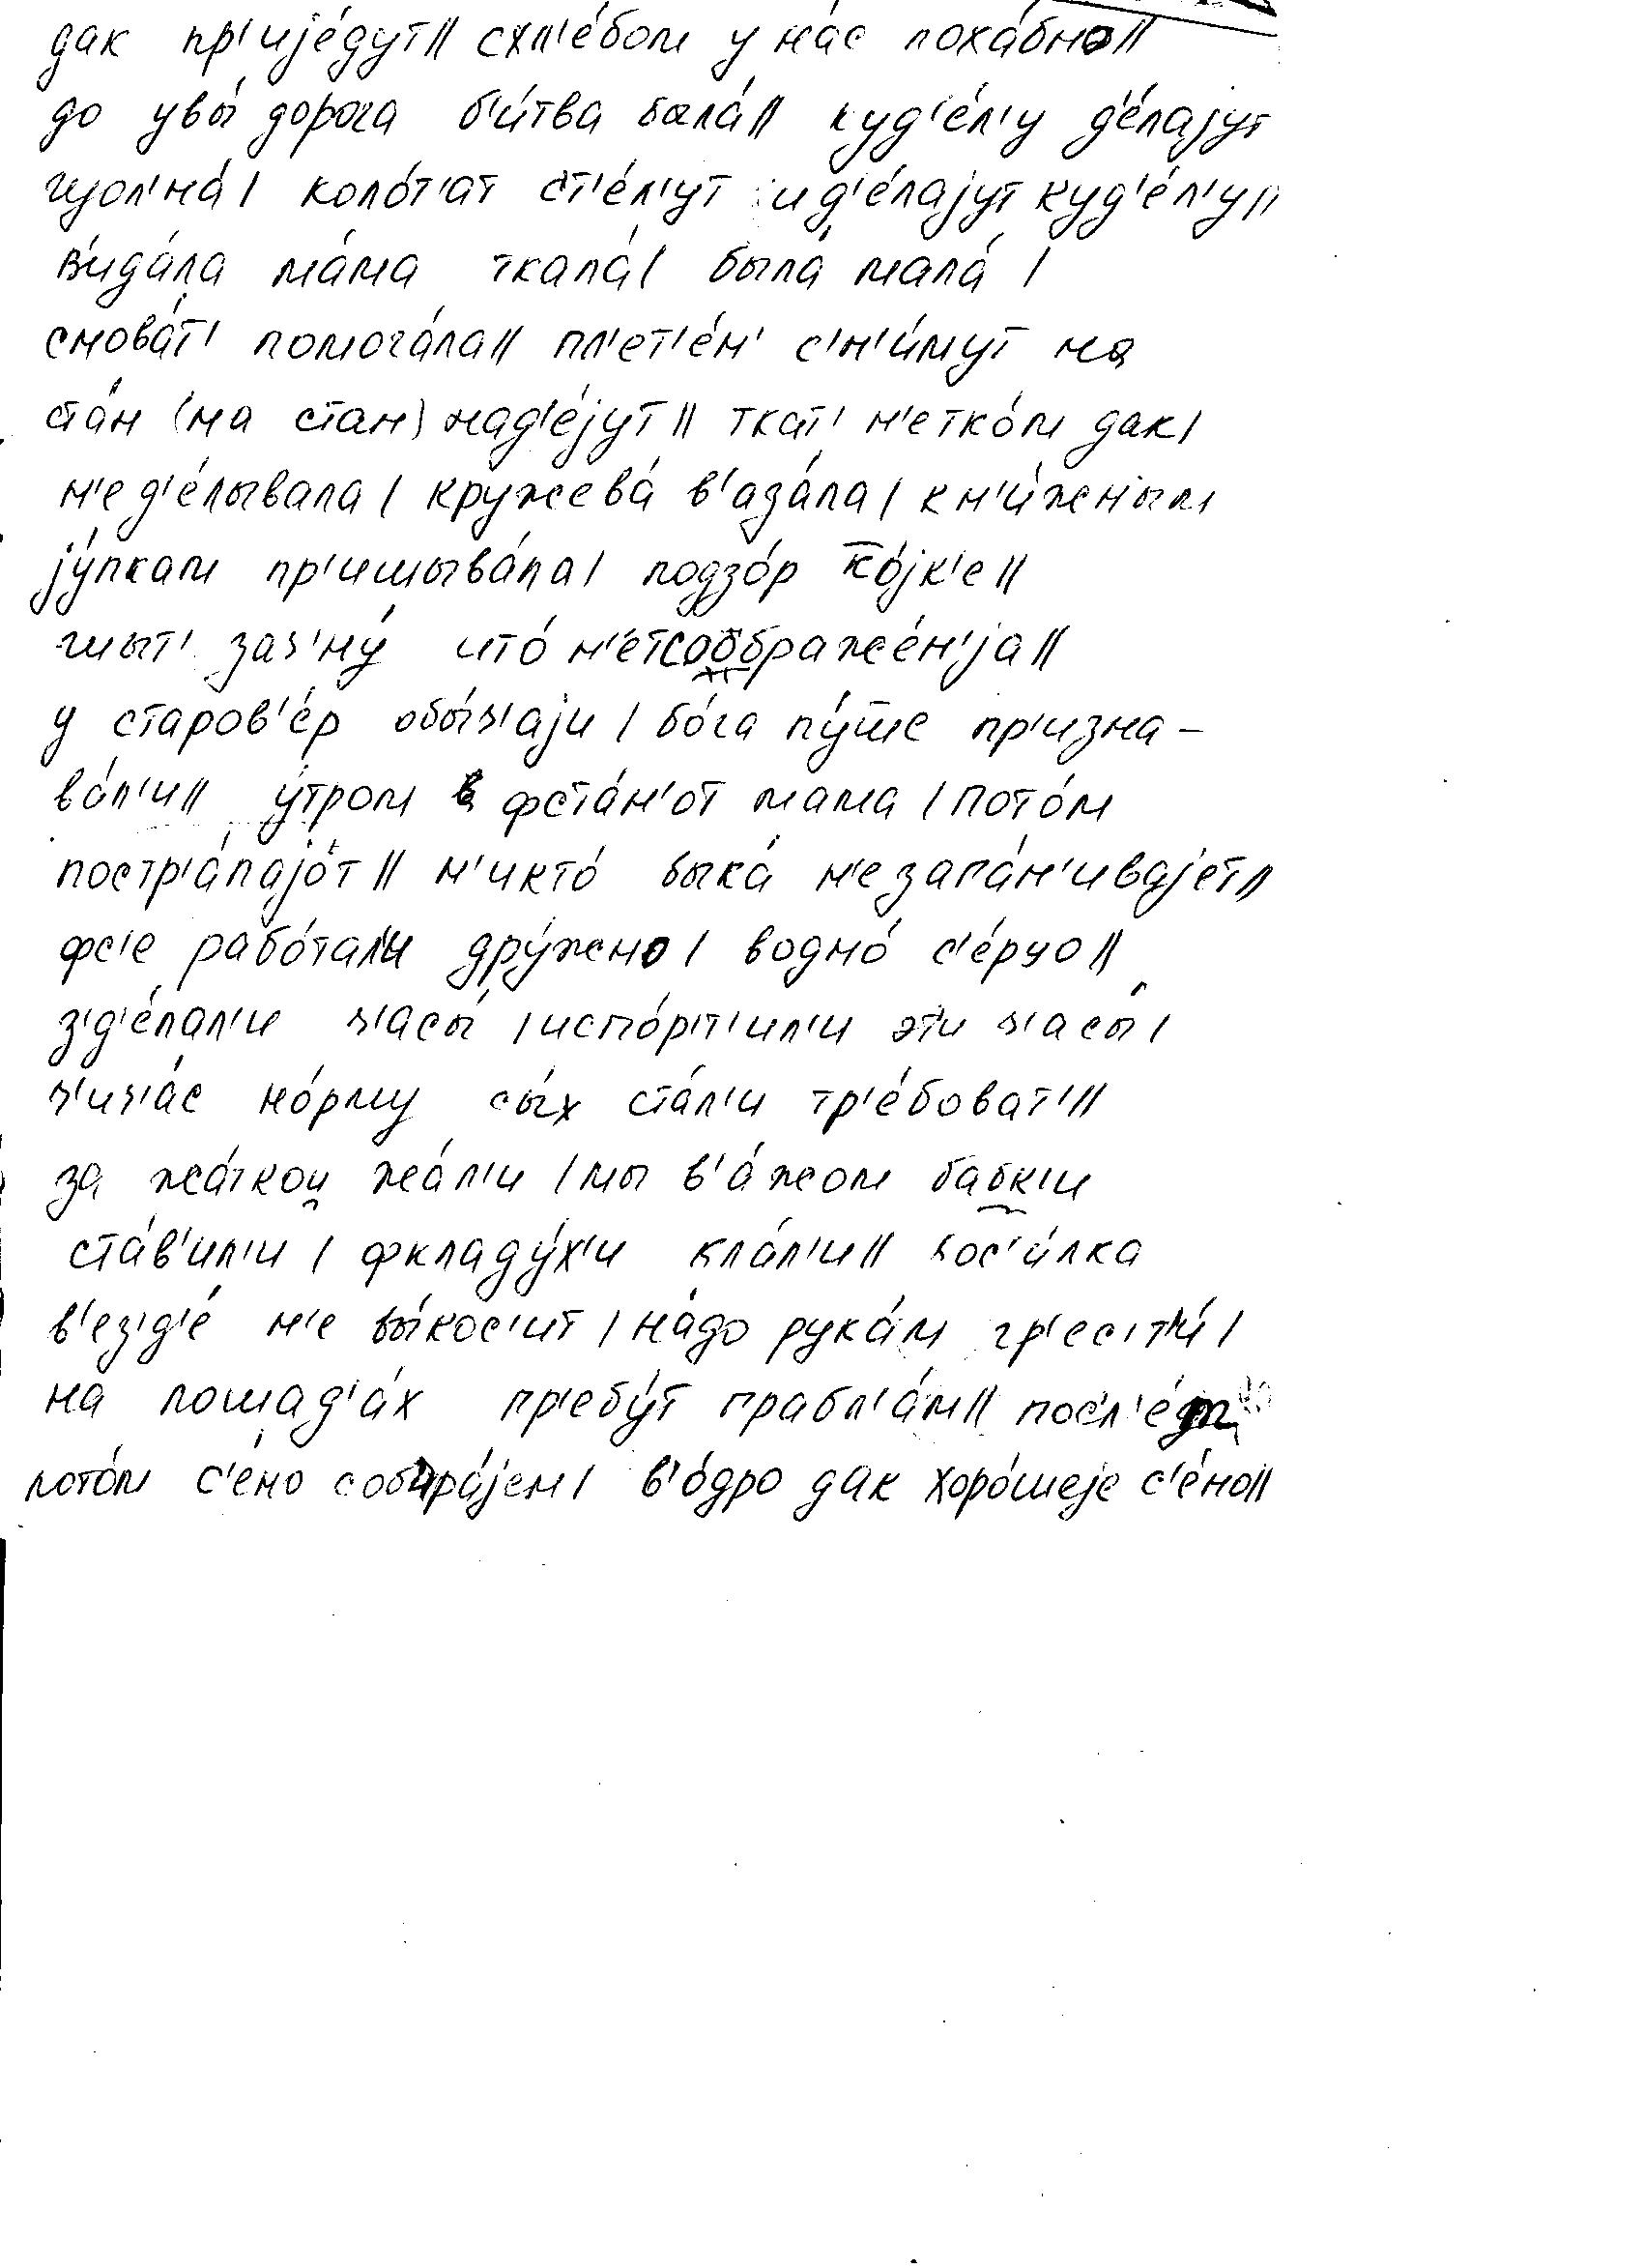 дак пр'ијéдут|| схл'éбом у нáс похáбно||
до увы́ дорога б'и́тва была́|| куд'éл'у д'éлајут
колóт'ат ст'éл'ут и д'éлајут куд'éл'у||
в'идáла мáма ткалá| былá малá |
сновáт' помогáла|| пл'ет'éн' с'н'и́мут на
стáн (на стан) над'éјут|| ткат' н'еткóм дак|
н'е д'éлывала| кружевá в'азáла| к н'и́жным
јýпкам пр'ишывáла| подзóр к̅óјк'е||
шыт' зач'нý што́ н'éтсоображéн'ја||
у старов'éр обы́ч'аји | бóга пýт̅ше пр'изна-
вáл'и|| ýтром фстáн'от мама | потóм
постр'áпајóт|| н'иктó быкá н'е загáн'ивајет||
фс'е рабóтал'и дрýжно| воднó с'éрцо||
з'д'éлал'и ч'асы́ | испóрт'ил'и эт'и ч'асы́|
ч'ич'áс нóрму сы́х стáл'и тр'éбоват'||
за жáткой жáл'и | мы в'áжом бабк'и
стáв'ил'и | фкладýх'и клáл'и|| кос'и́лка
в'ез'д'é н'е вы́кос'ит | нáдо рукáм гр'ес'т'и́|
на лошад'áх гр'ебýт грабл'áм||
потóм с'éно собирáјем| в'óдро дак хорóшеје с'éно||